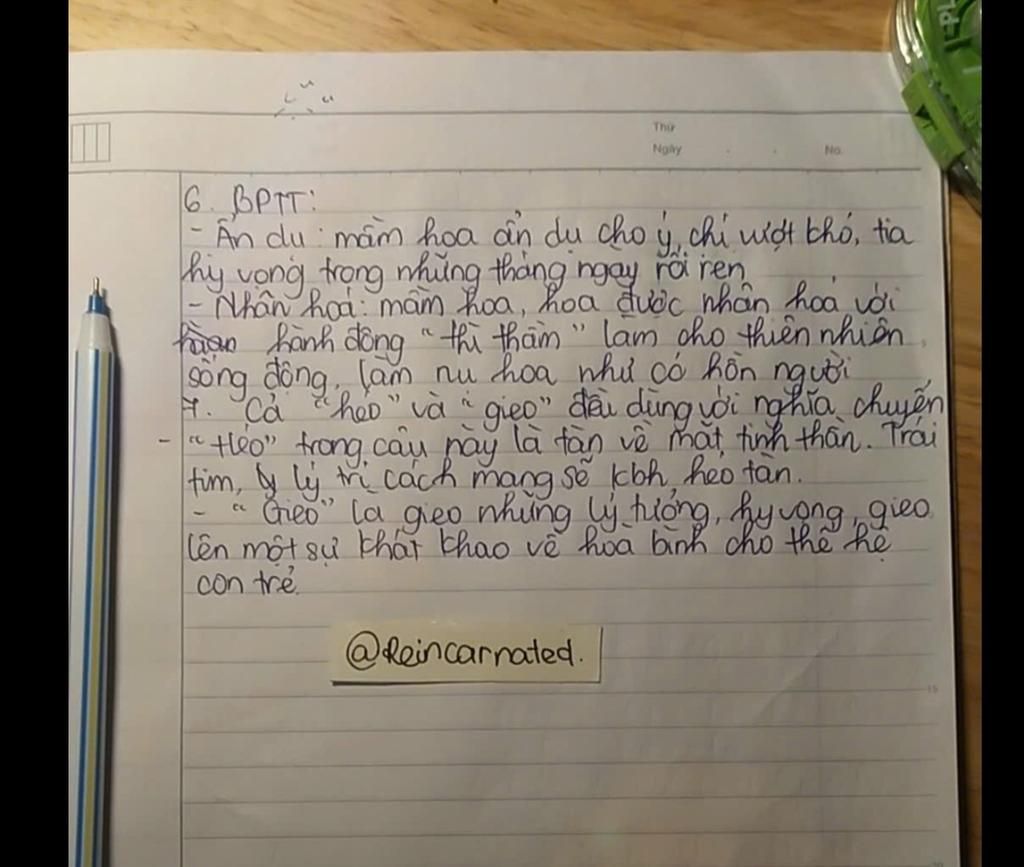 Thứ
Ngày
No.
6. BPTT:
- Ẩn dụ: mầm hoa ẩn dụ cho ý chí vượt khó, tia
hy vọng trong những tháng ngày rối ren
- Nhân hoá: mầm hoa, hoa được nhân hoá với
hành động "thì thầm" làm cho thiên nhiên
sống động, làm nụ hoa như có hồn người
7. Cả "héo" và "gieo" đều dùng với nghĩa chuyển
- "Héo" trong câu này là tàn về mặt tinh thần. Trái
tim, lý trí cách mạng sẽ kbh héo tàn.
- "Gieo" là gieo những lý tưởng, hy vọng, gieo
lên một sự khát khao về hoà bình cho thế hệ
con trẻ.
@Reincarnated.
15